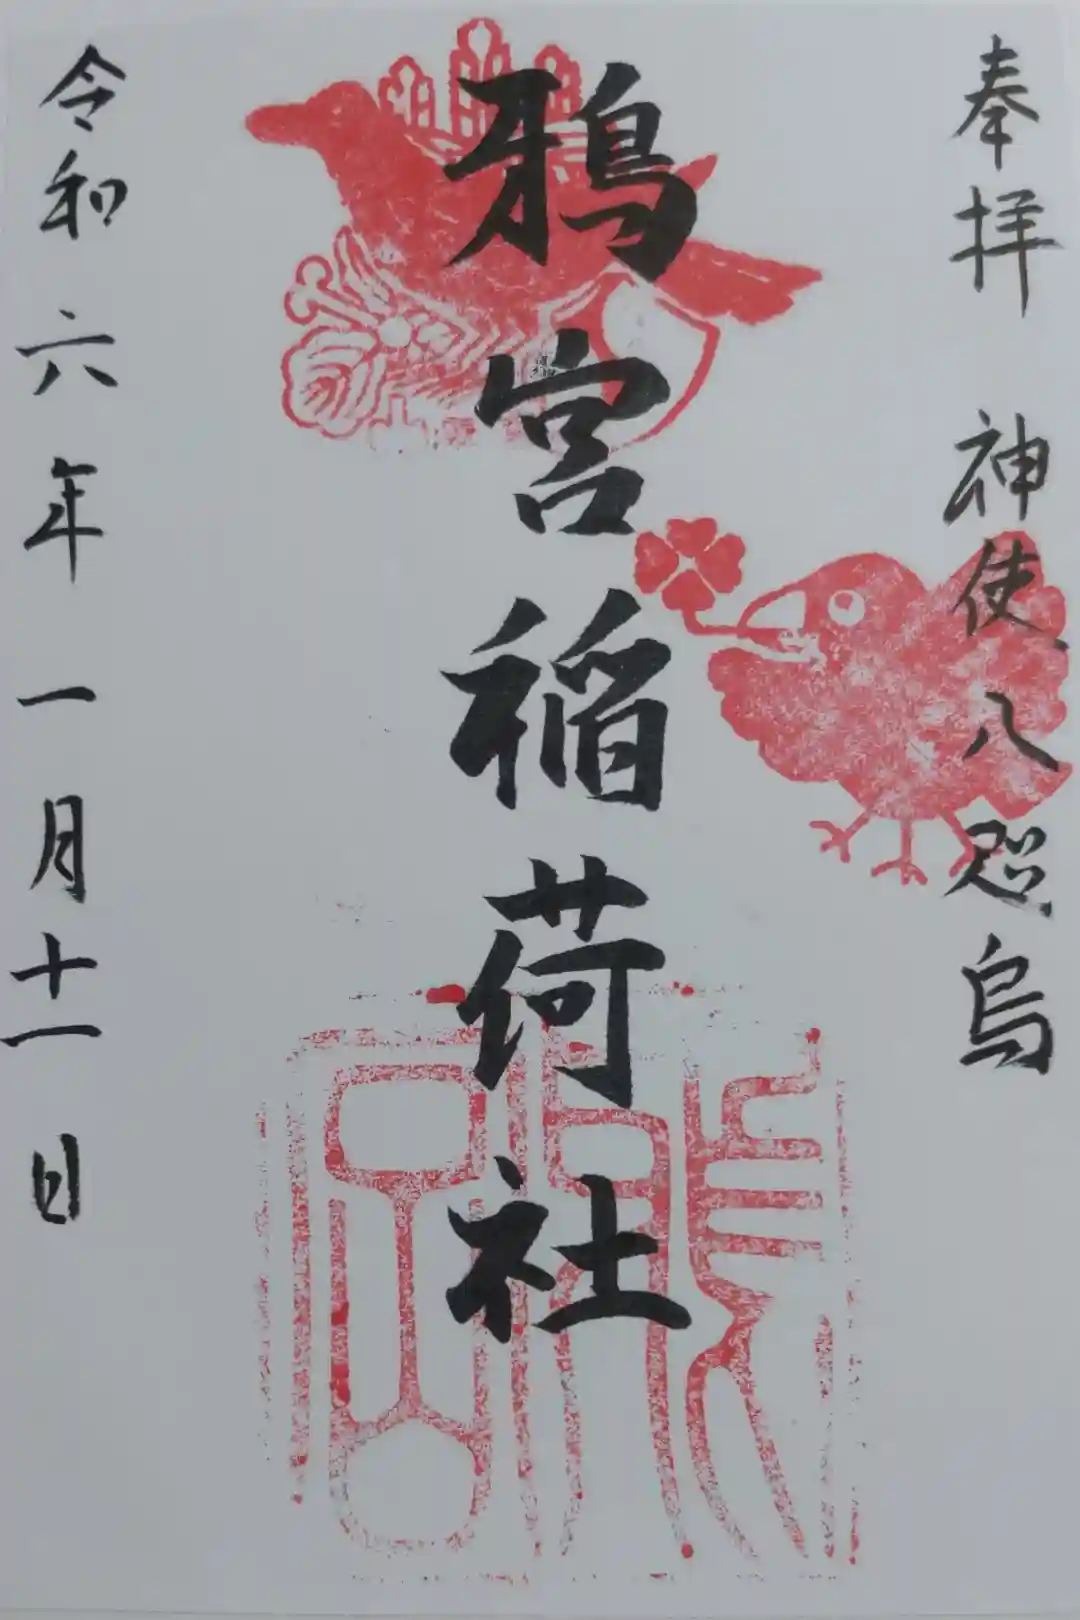 奉拝 神使 八咫烏
鴉宮稲荷社
令和六年一月十一日